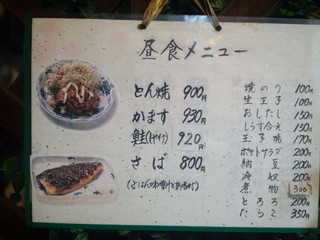 昼食メニュー
とん焼 900円
かます 930円
鮭(ハラス) 920円
さば 800円
(ごはん味噌汁お新香付)
焼のり 100円
生玉子 100円
おしたし 150円
しらす合え 150円
玉子焼 170円
ポテトサラダ 200円
納豆 200円
冷奴 200円
煮物 300
とろろ 200円
たらこ 350円